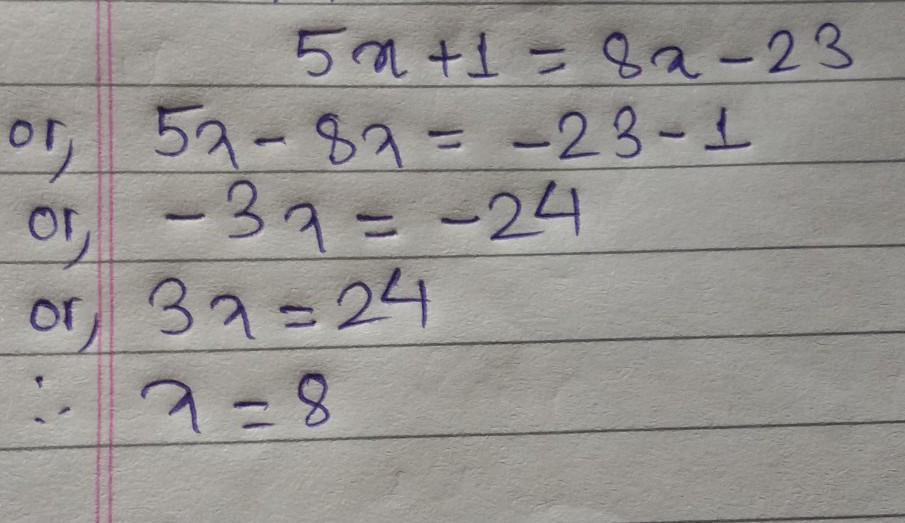 5x+1 = 8x-23
or, 5x - 8x = -23-1
or, -3x = -24
or, 3x = 24
∴ x = 8